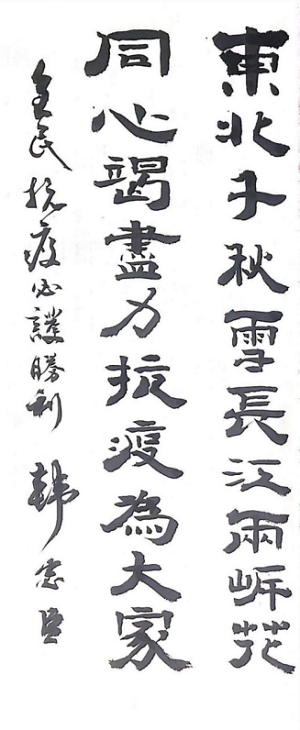 東北千秋雪長江兩岸花
同心竭盡力抗疫為大家
全民抗疫必護勝利 韩